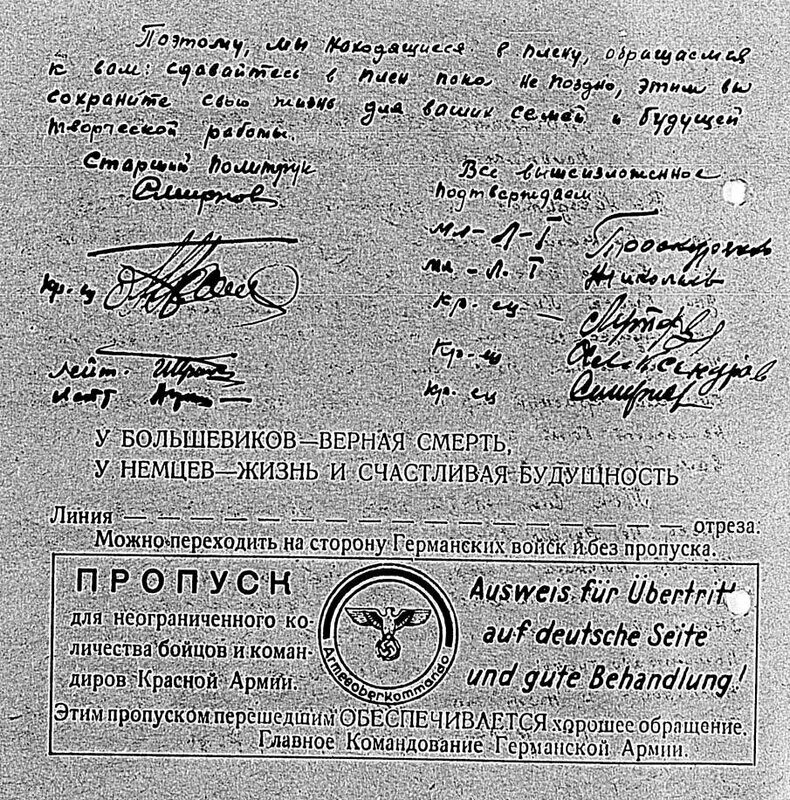 Поэтому, мы находящиеся в плену, обращаемся
к вам: сдавайтесь в плен пока не поздно, этим вы
сохраните свою жизнь для ваших семей и будущей
творческой работы.
Старший политрук
Смирнов
Кр-ец
Лейт.
Лейт
Все вышеизложенное
подтверждаем
мл-Л-Т
мл-Л-Т Николаев
кр. ец —
Кр-ец Александров
кр. ец Смирнов
У БОЛЬШЕВИКОВ—ВЕРНАЯ СМЕРТЬ,
У НЕМЦЕВ—ЖИЗНЬ И СЧАСТЛИВАЯ БУДУЩНОСТЬ
Линия — — — — — — — — — — — — — — — — — — отреза.
Можно переходить на сторону Германских войск и без пропуска.
ПРОПУСК
для неограниченного ко-
личества бойцов и коман-
диров Красной Армии.
Armeeoberkommando
Ausweis für Übertritt
auf deutsche Seite
und gute Behandlung!
Этим пропуском перешедшим ОБЕСПЕЧИВАЕТСЯ хорошее обращение.
Главное Командование Германской Армии.